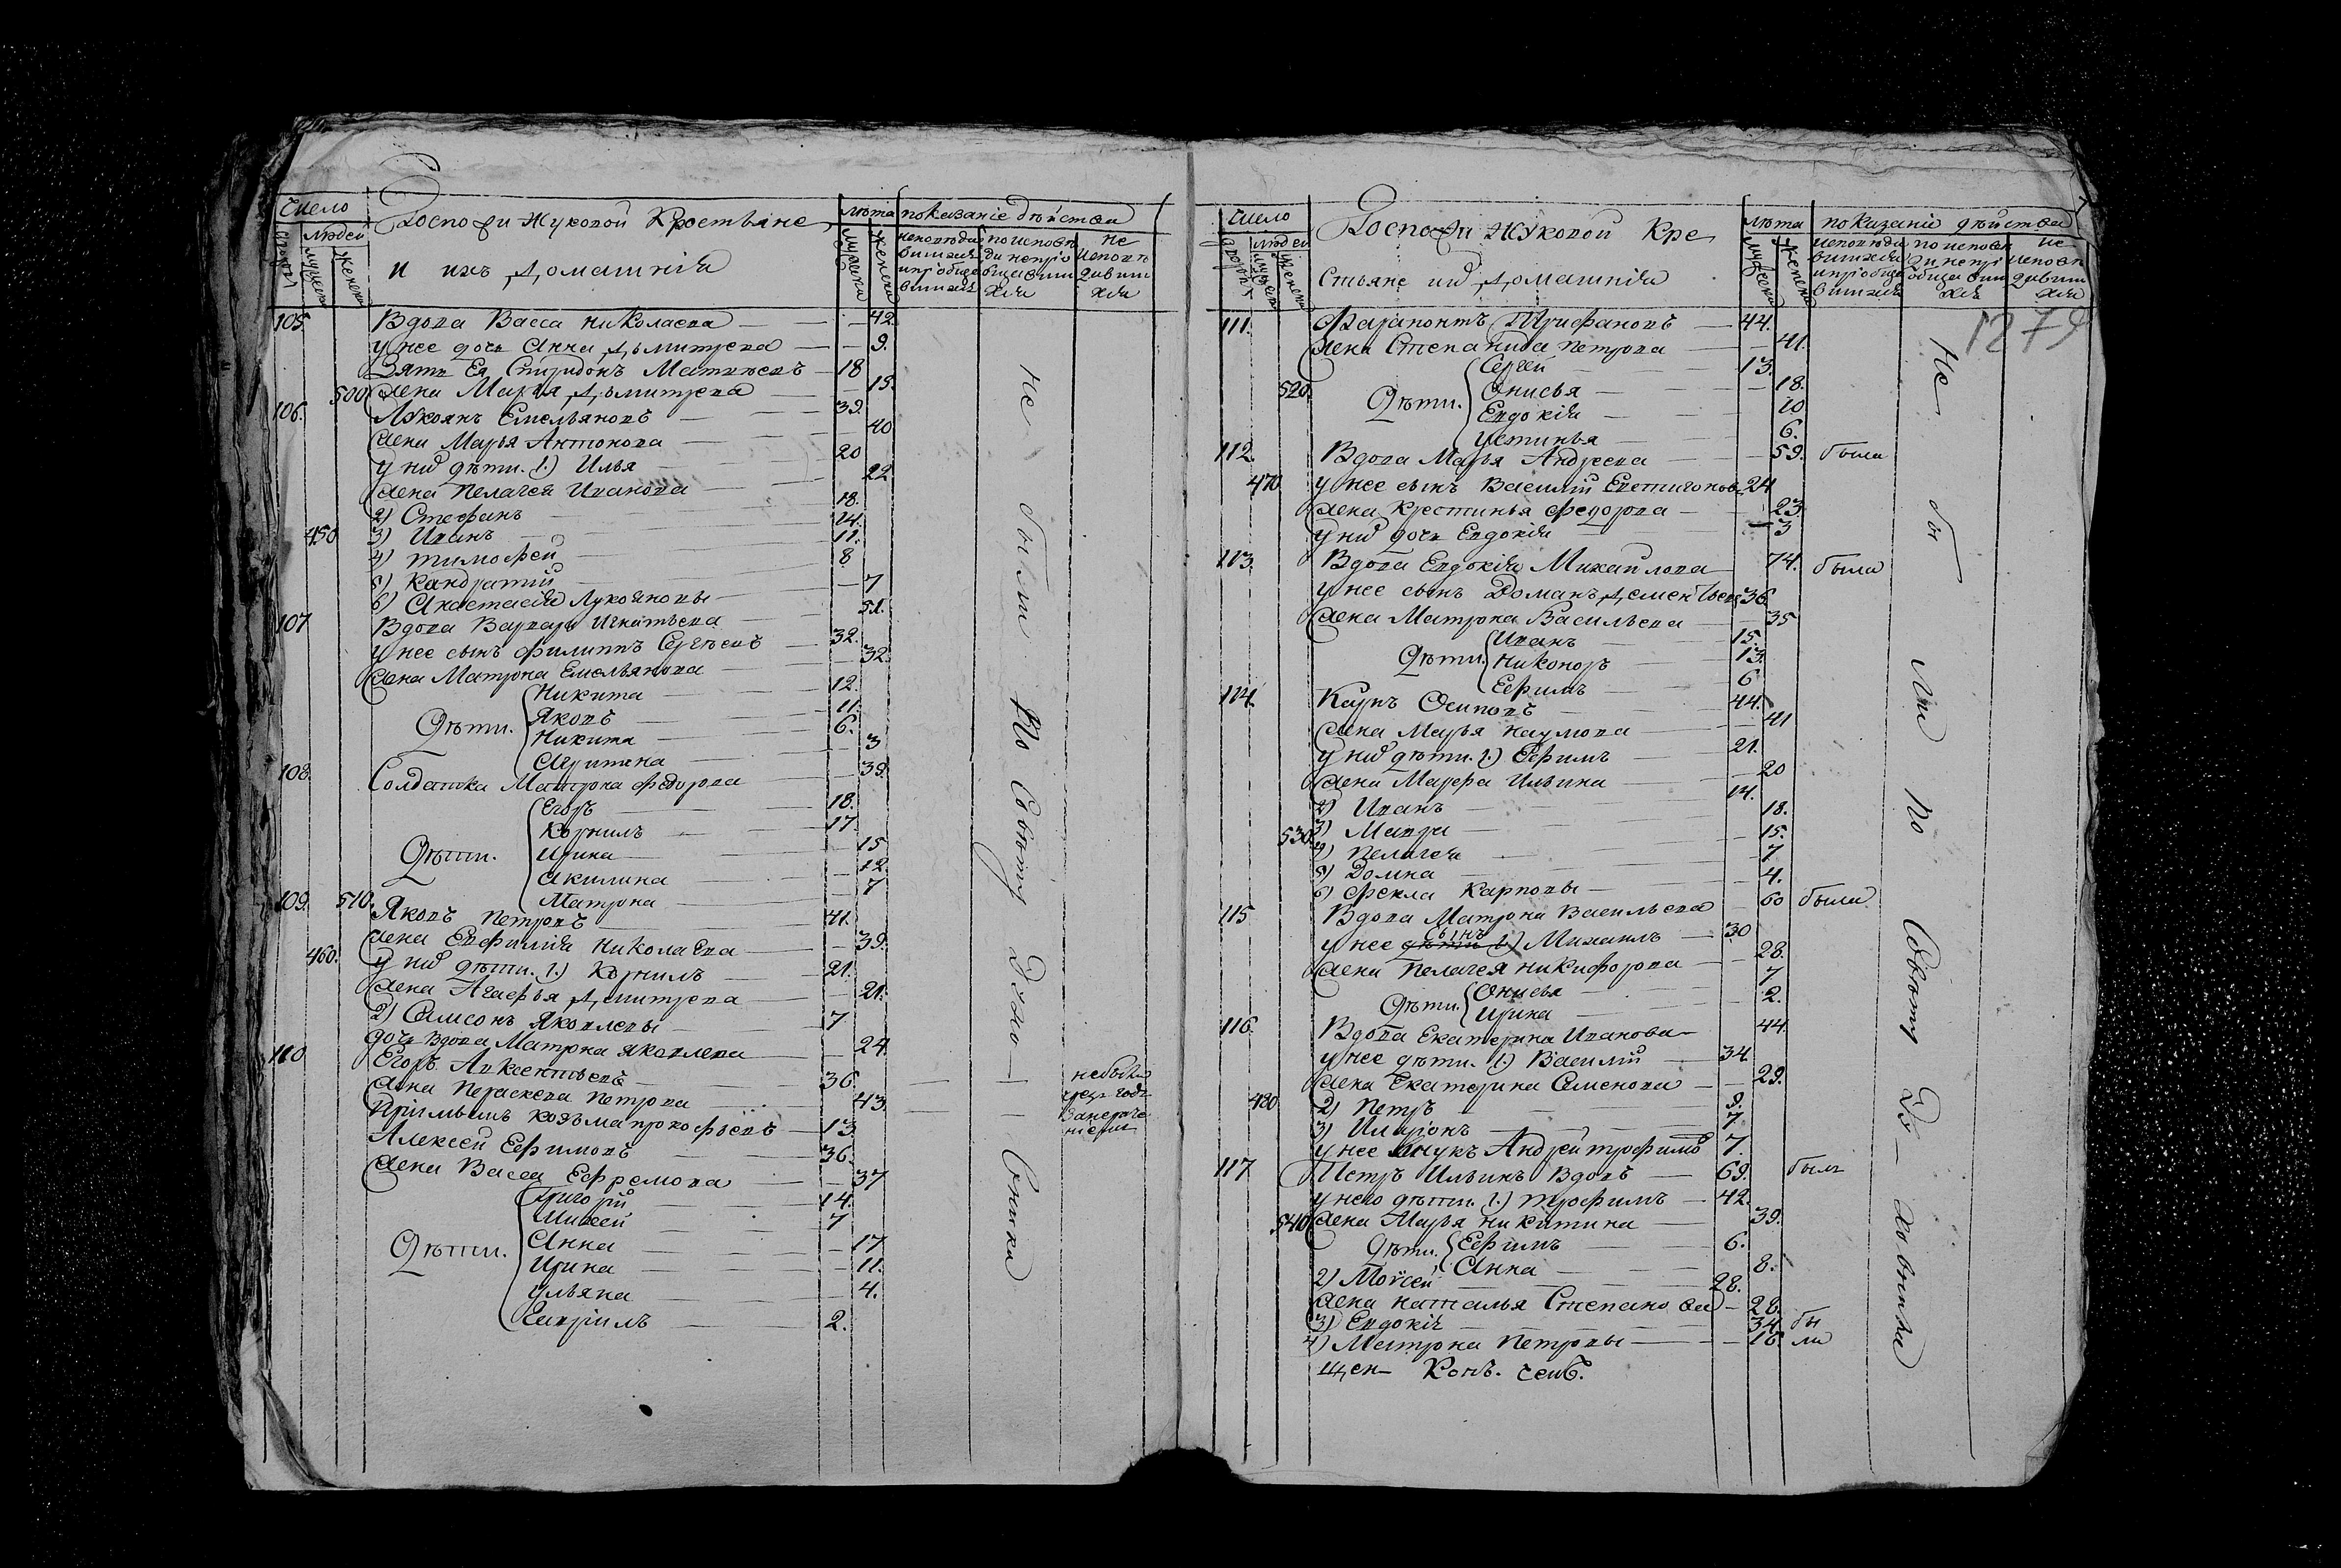 Число
Госпожи Жуковой Крестьяне
лѣта показаніе дѣйства
дворовъ
людей
мужеска
женска
и ихъ домашнія
мужеска
женска
исповѣдавшихся и пріобщавшихся
по исповѣди непріобщавшихся
не исповѣдавшихся
105 Вдова Васса Николаева — 42
у нее дочь Анна Дьмитрева — 9.
Зять Ея Спиридонъ Матвѣевъ — 18
500 жена Марья Дьмитрева — 15.
106. Лукоянъ Емельяновъ — 39.
жена Марья Антонова — 40
у них дѣти. 1.) Илья — 20
жена Пелагея Иванова — 22
2) Стефанъ — 18.
450 3) Иванъ — 14.
4) Тимофей — 11.
5) Кандратий — 8
6) Анастасія Лукояновы — 7
107 Вдова Варвара Игнатьева — 51.
у нее сынъ Филиппъ Сергѣевъ — 32.
жена Матрона Емельянова — 32.
Дѣти. Никита — 12.
Яковъ — 11.
Никита — 6.
Агрипена — 3
108. Солдатка Матрона Федорова — 39.
Дѣти. Егоръ — 18.
Корнилъ — 17
Ирина — 15
Акилина — 12.
510. Матрона — 7
109. Яковъ Петровъ — 41.
жена Евфимія Николаева — 39.
460. у них дѣти. 1.) Корнилъ — 21.
жена Агафья Дмитрева — 21.
2) Самсонъ Яковлевы — 7
дочь вдова Матрона Яковлева — 24
110 Егоръ Авксентьевъ — 36
жена Параскева Петрова — 43
Пріимышъ Козьма Прокофьевъ — 13
Алексей Ефимовъ — 36.
жена Васса Ефремова — 37
Дѣти. Григорій — 14.
Мисеей — 7
Анна — 17
Ирина — 11.
Ульяна — 4.
Гаврілъ — 2.
не были По Совѣту Духо —
Число
Госпожи Жуковой Кре
лѣта показаніе дѣйства
дворовъ
людей
мужеска
женска
стьяне их домашнія
мужеска
женска
исповѣдавшихся и пріобщавшихся
по исповѣди непріобщавшихся
не исповѣдавшихся
111. Фарапонтъ Трифановъ — 44.
жена Степанида Петрова — 41.
Дѣти. Сергей — 13.
520. Онисья — 18.
Евдокія — 10
Устинья — 6.
112. Вдова Марья Андреева — 59. была
470 у нее сынъ Василій — 24
жена Крестинья Федорова — 23
у них дочь Евдокія — 3
113. Вдова Евдокія Михайлова — 74. была
у нее сынъ Доманъ Дементьевъ 36.
жена Матрона Васильева — 35
Дѣти. Иванъ — 15.
Никоноръ — 13.
Ефимъ — 6
114. Карпъ Осиповъ — 44.
жена Марья Наумова — 41
у них дѣти. 1.) Ефимъ — 21.
жена Марфа Ильина — 20
2) Иванъ — 14.
3) Мавра — 18.
530. 4) Пелагея — 15.
5) Домна — 7
6) Фекла Карповы — 4.
115 Вдова Матрона Васильева — 60 была
у нее сынъ Михаилъ — 30
жена Пелагея Никифорова — 28.
Дѣти. Онисья — 7
Ирина — 2.
116. Вдова Екатерина Иванова — 44.
у нее дѣти. 1.) Василий — 34.
жена Екатерина Семенова — 29.
480 2) Петръ — 9.
3) Иларіонъ — 7
у нее внукъ Андрей Трофимо 7.
117 Петръ Ильинъ вдовъ — 69. былъ
у него дѣти. 1.) Трофимъ — 42.
540 жена Марья Никитина — 39.
Дѣти. Ефимъ — 6.
Анна — 8.
2) Моѵсей — 28.
жена Наталья Степанова — 28.
3) Евдокія — 34. бы
4) Матрона Петровы — 16. ли
Не бы ли по Совѣту Ду — ховника